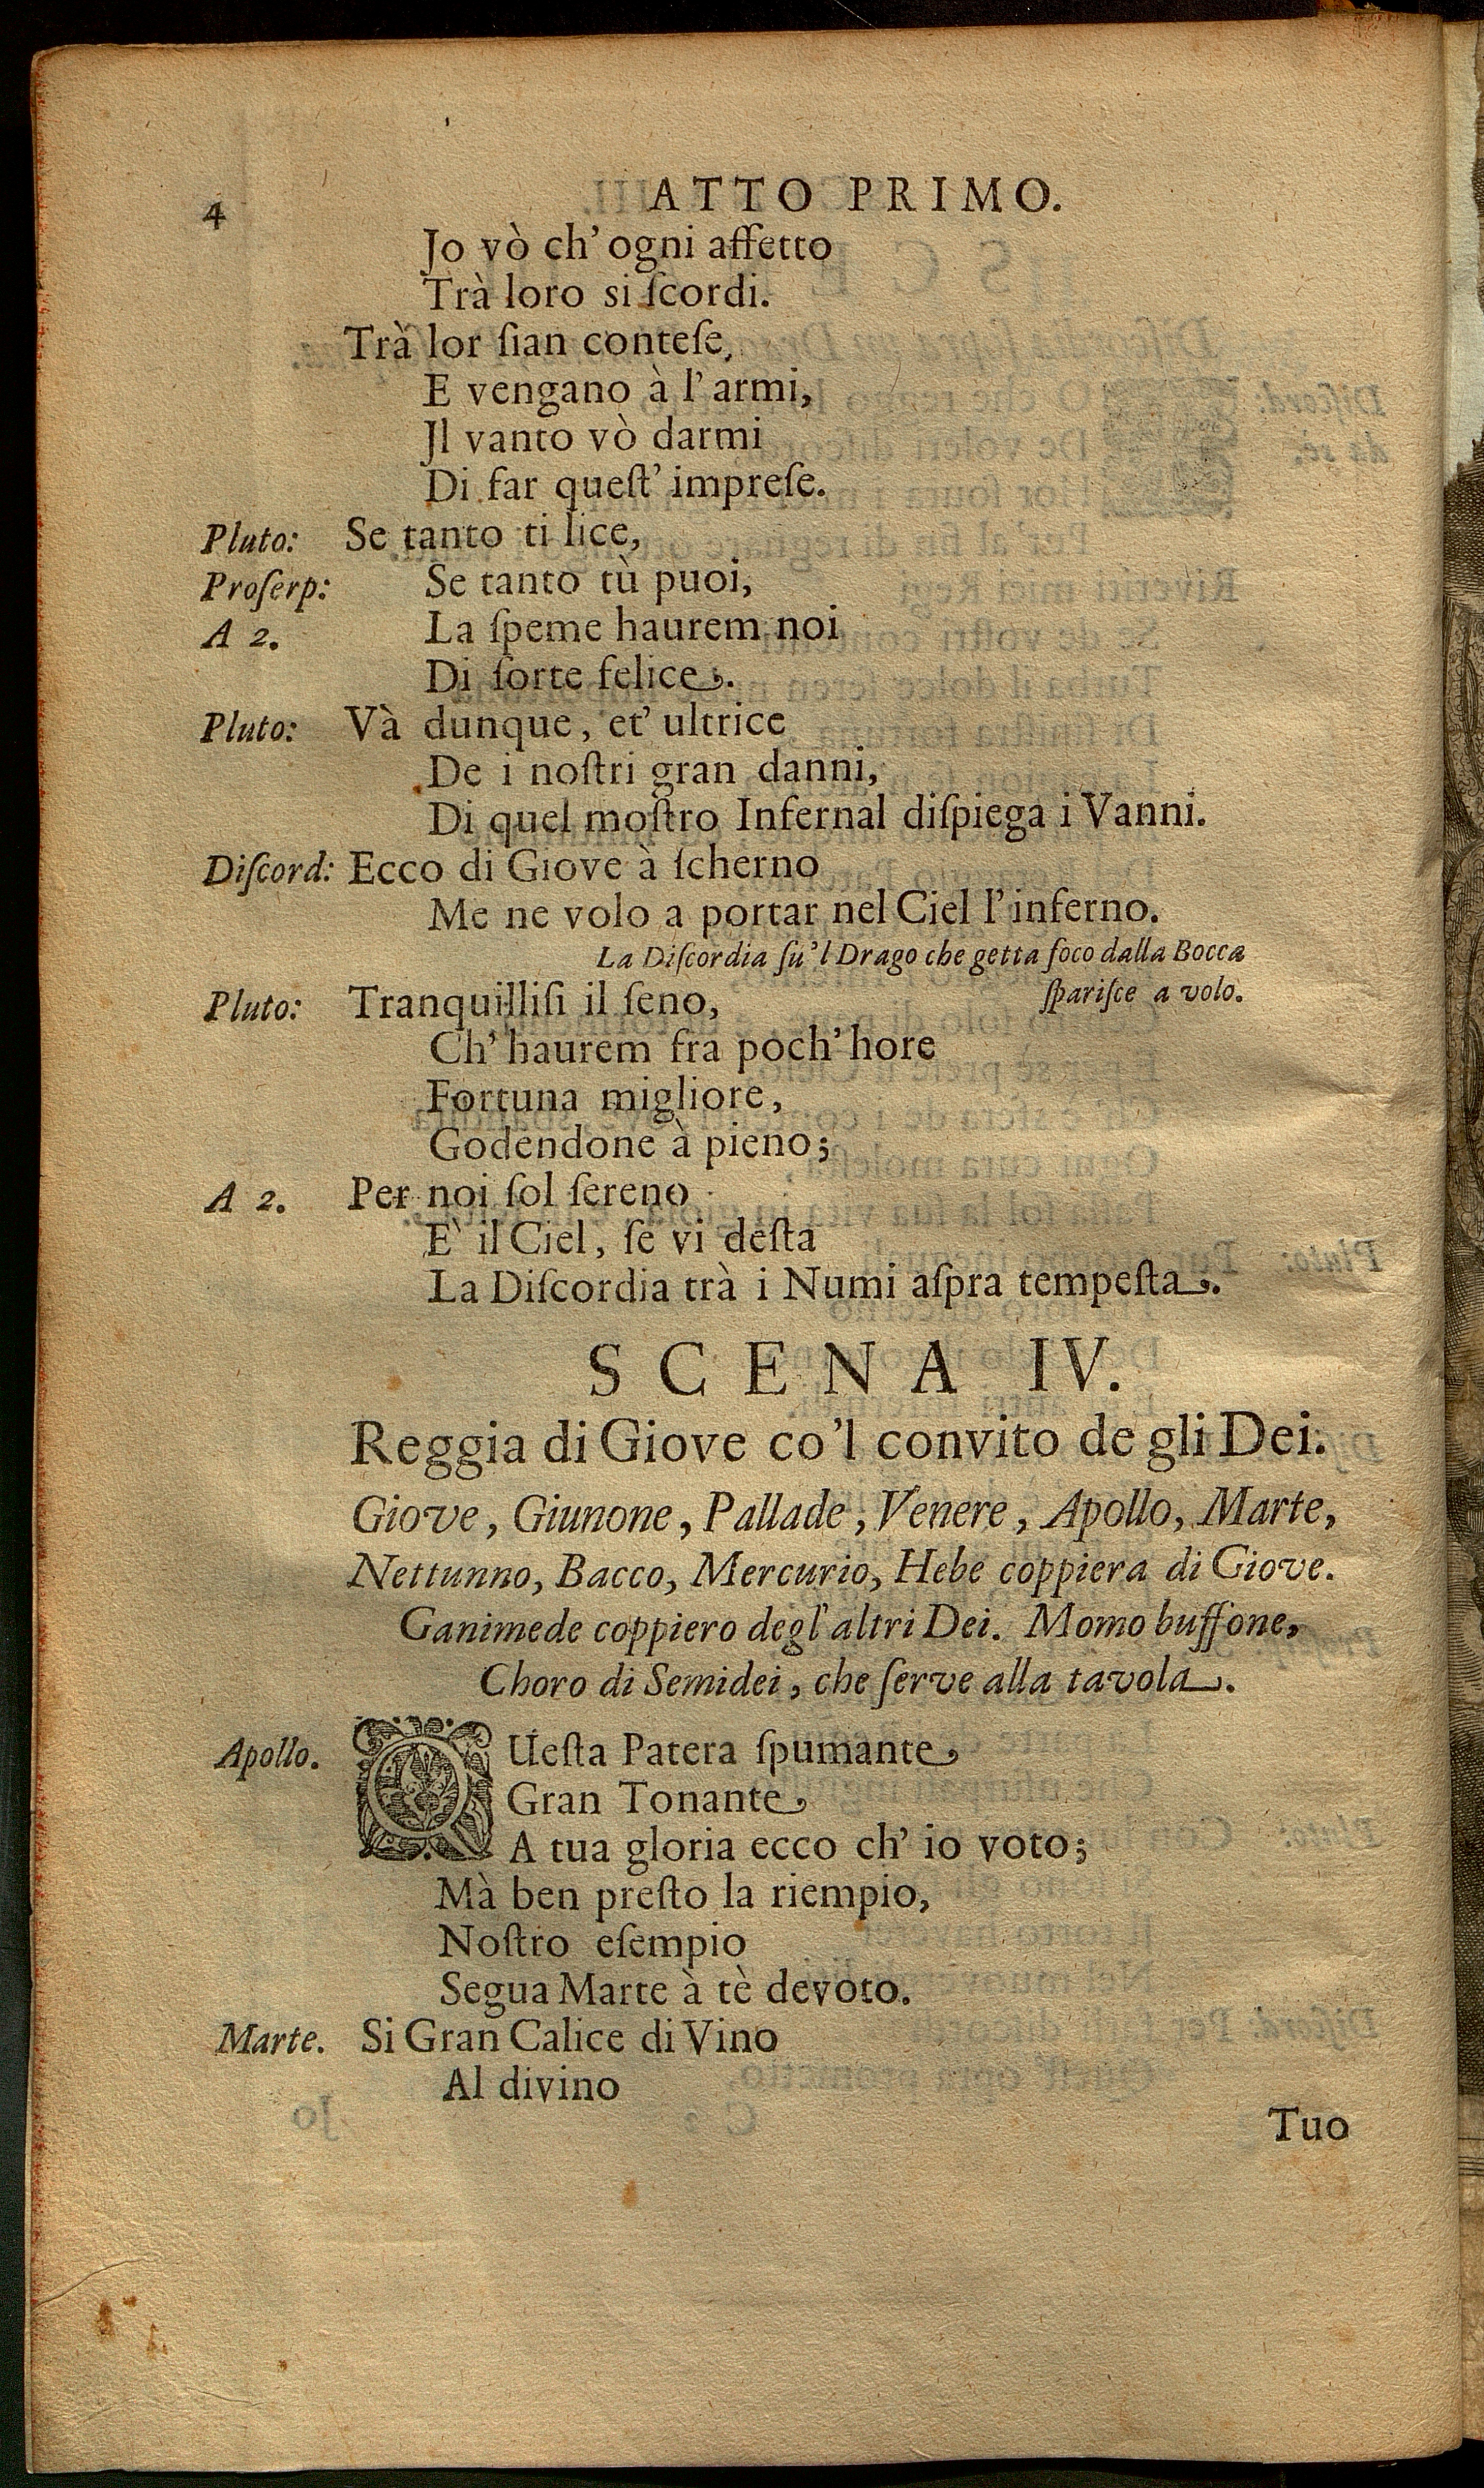 4 ATTO PRIMO.
Jo vò ch' ogni affetto
Trà loro si ſcordi.
Trà lor ſian conteſe,
E vengano à l' armi,
Jl vanto vò darmi
Di far queſt' impreſe.
Pluto: Se tanto ti lice,
Proſerp: Se tanto tù puoi,
A 2. La ſpeme haurem noi
Di ſorte felice.
Pluto: Và dunque, et' ultrice
De i noſtri gran danni,
Di quel moſtro Infernal diſpiega i Vanni.
Diſcord: Ecco di Giove à ſcherno
Me ne volo a portar nel Ciel l' inferno.
La Diſcordia ſu'l Drago che getta foco dalla Bocca
ſpariſce a volo.
Pluto: Tranquilliſi il ſeno,
Ch' haurem fra poch' hore
Fortuna migliore,
Godendone à pieno;
A 2. Per noi ſol ſereno
E` il Ciel, ſe vi deſta
La Diſcordia trà i Numi aſpra tempeſta.
SCENA IV.
Reggia di Giove co'l convito de gli Dei.
Giove, Giunone, Pallade, Venere, Apollo, Marte,
Nettunno, Bacco, Mercurio, Hebe coppiera di Giove.
Ganimede coppiero degl' altri Dei. Momo buffone,
Choro di Semidei, che ſerve alla tavola.
Apollo. QUeſta Patera ſpumante,
Gran Tonante,
A tua gloria ecco ch' io voto;
Mà ben preſto la riempio,
Noſtro eſempio
Segua Marte à tè devoto.
Marte. Si Gran Calice di Vino
Al divino
Tuo